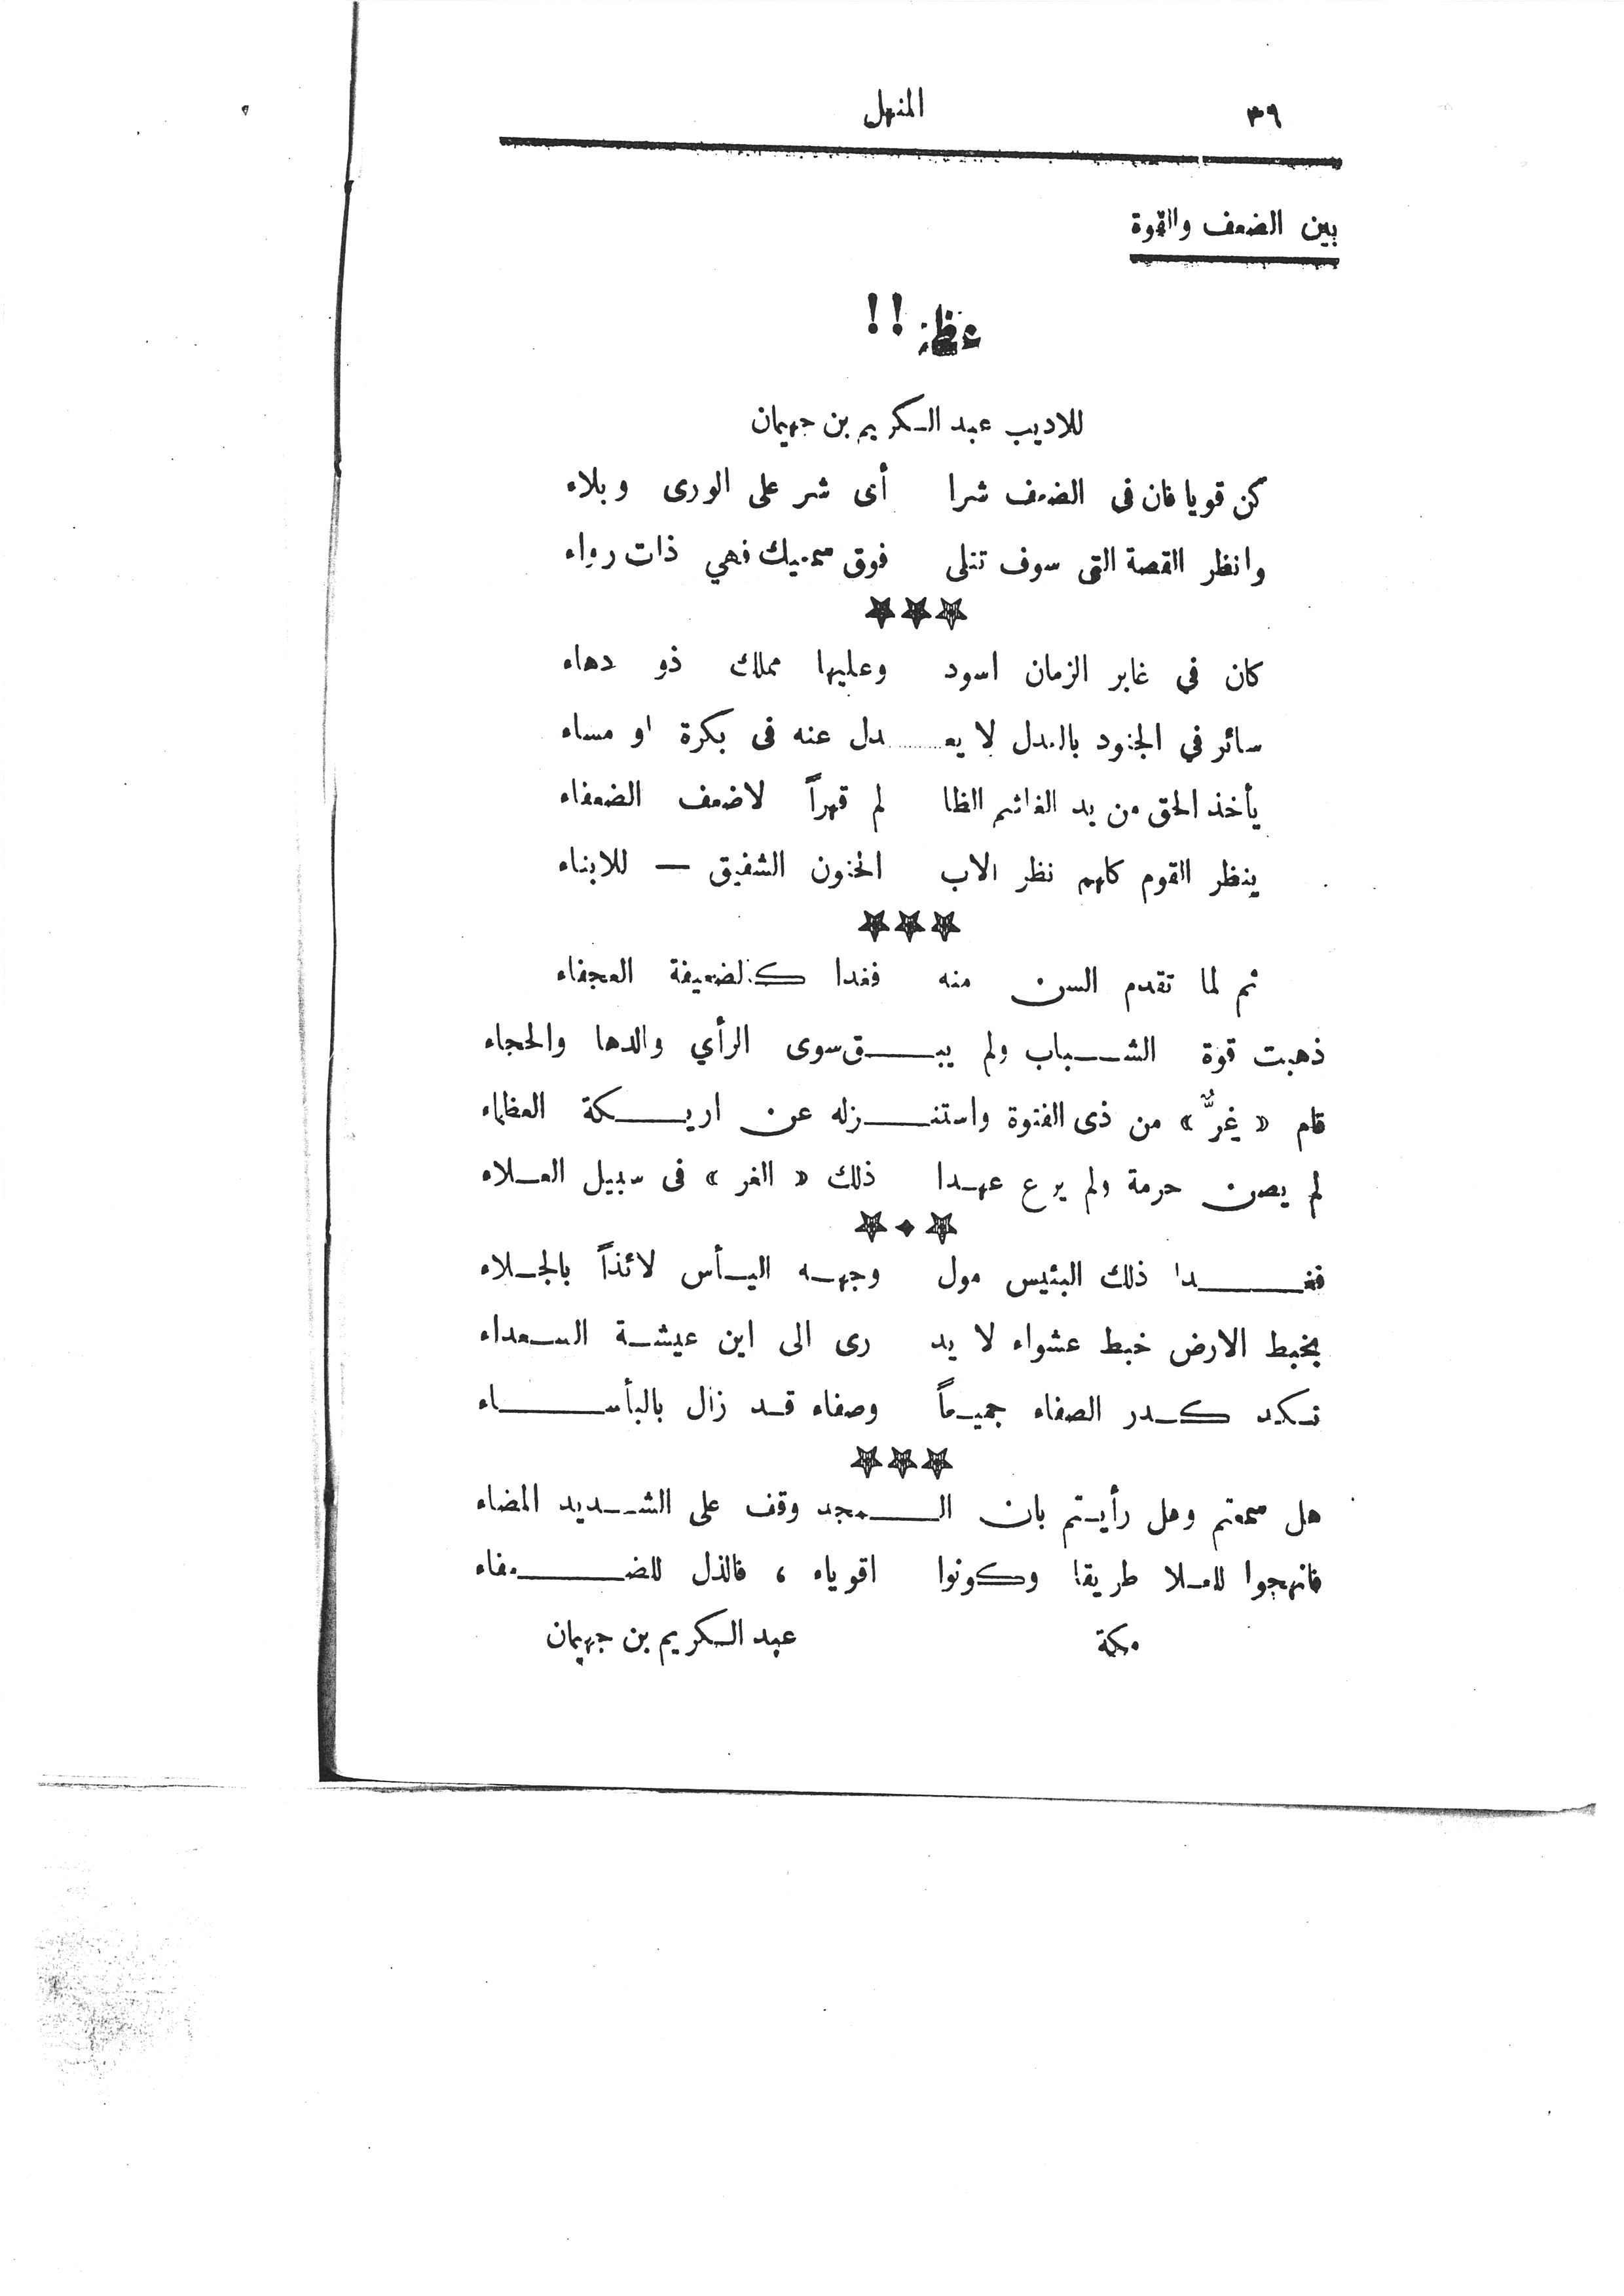 ٣٩ المنهل
بين الضعف والقوة
عظة !!
للاديب عبد الكريم بن جهيمان
كن قويا فان في الضعف شرا أى شر على الورى وبلاء
وانظر القصة التى سوف تتلى فوق سمعيك فهي ذات رواء
***
كان في غابر الزمان اسود وعليها مملك ذو دهاء
سائر في الجنود بالعدل لا يعـ ـدل عنه فى بكرة او مساء
يأخذ الحق من يد الغاشم الظا لم قهراً لاضعف الضعفاء
ينظر القوم كلهم نظر الاب الحنون الشفيق — للابناء
***
ثم لما تقدم السن منه فغدا كالضعيفة العجفاء
ذهبت قوة الشباب ولم يبـق سوى الرأي والدها والحجاء
قام « غرٌّ » من ذى الفتوة واستنـزله عن اريكة العظماء
لم يصن حرمة ولم يرع عهدا ذلك « الغر » فى سبيل العلاء
***
فغدا ذلك البئيس مول وجهه اليأس لائذاً بالجلاء
يخبط الارض خبط عشواء لا يد رى الى اين عيشة السعداء
نكد كدر الصفاء جميعاً وصفاء قد زال بالبأساء
***
هل سمعتم وهل رأيتم بان المجد وقف على الشديد المضاء
فانهجوا للعلا طريقا وكونوا اقوياء ، فالذل للضعفاء
مكة عبد الكريم بن جهيمان